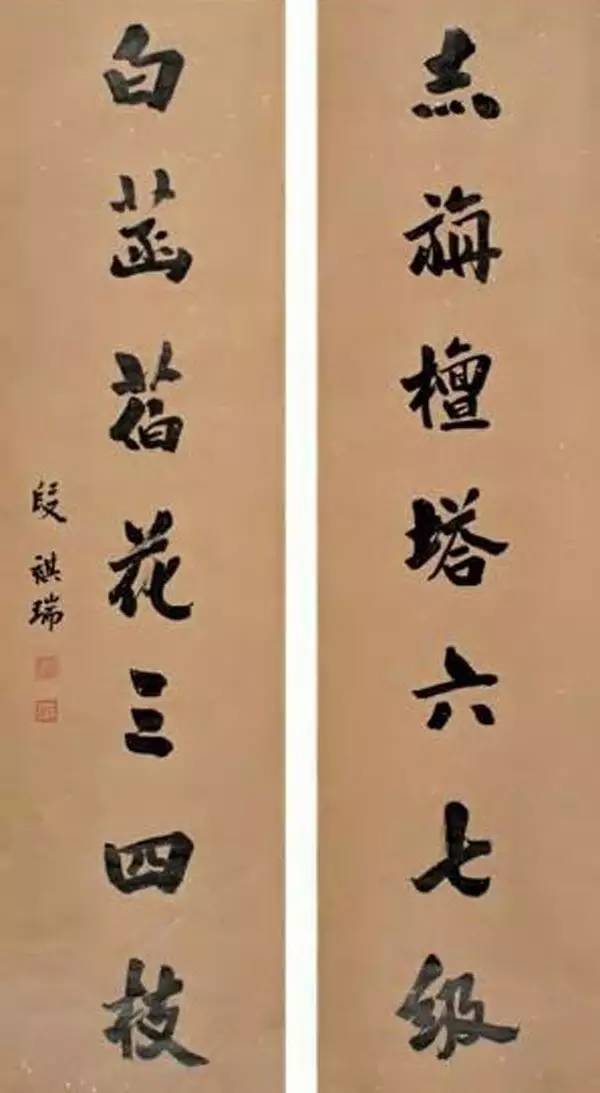 赤旃檀塔六七級
白菡萏花三四枝
段祺瑞